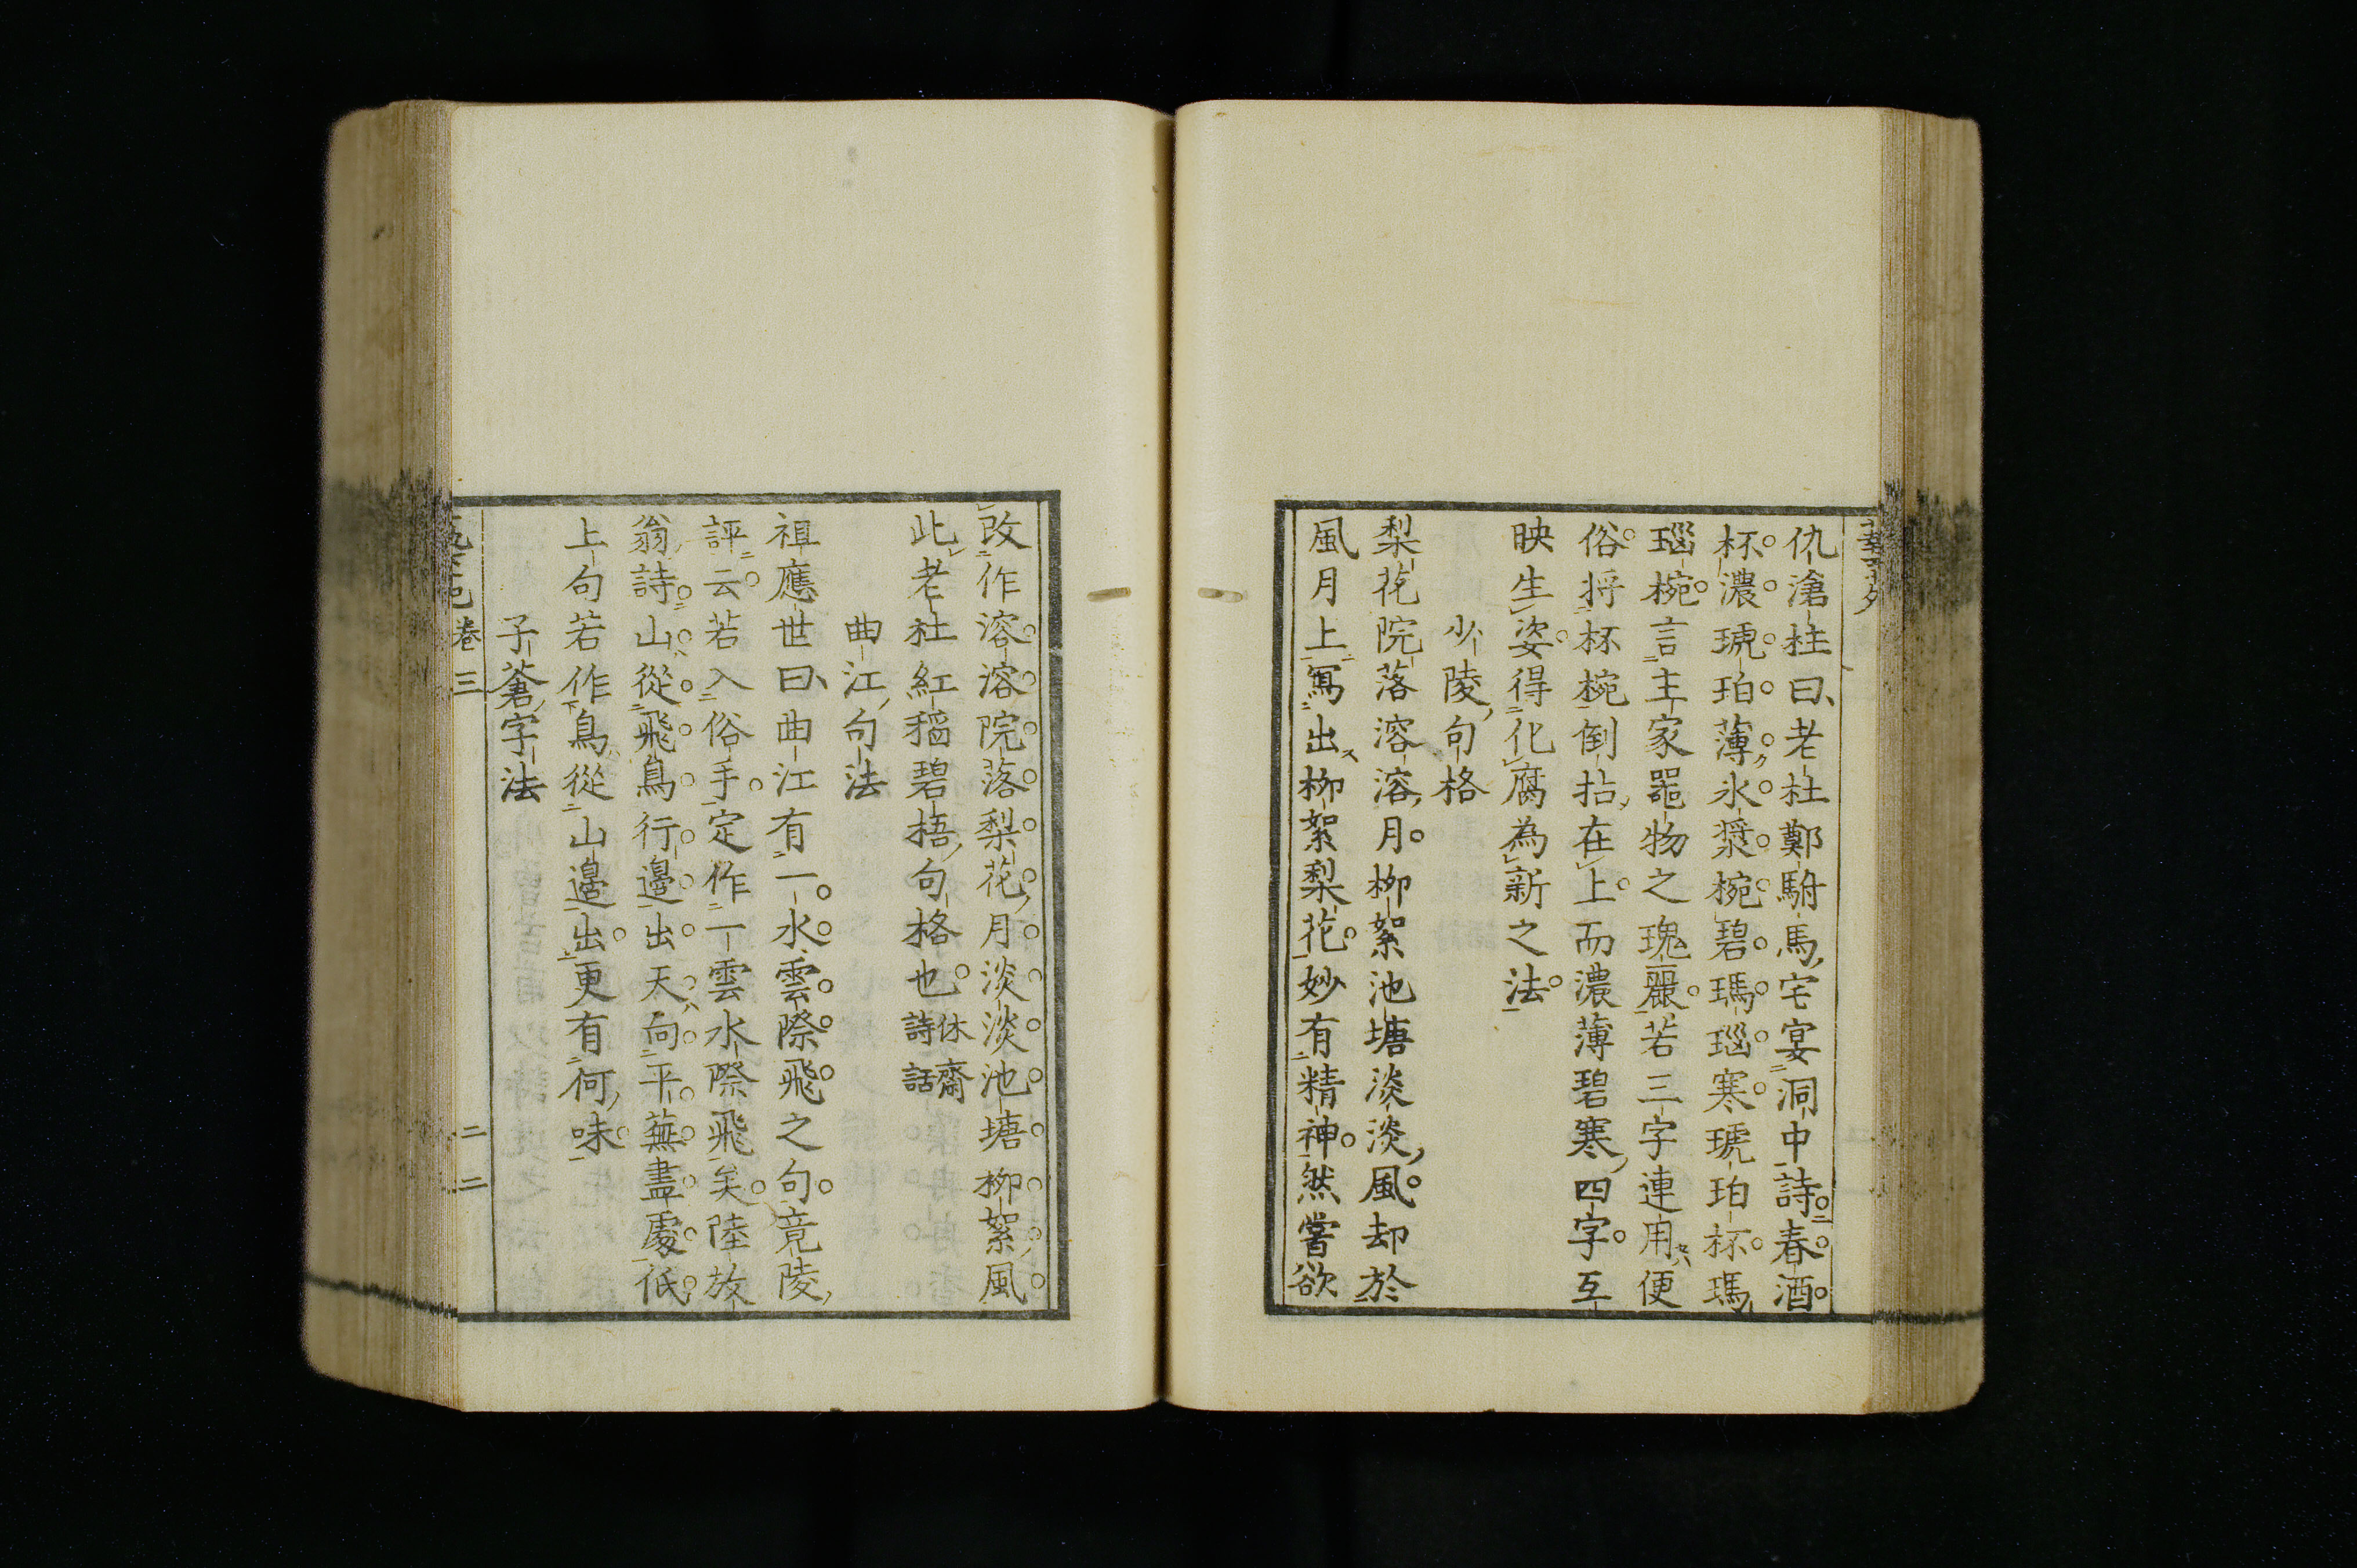 仇滄柱曰老杜鄭駙馬宅宴洞中詩春酒
杯濃琥珀薄氷漿椀碧瑪瑙寒琥珀杯瑪
瑙椀言主家噐物之瑰麗若三字連用便
俗将杯椀倒拈在上而濃薄碧寒四字互
映生姿得化腐為新之法
少陵句格
梨花院落溶溶月柳絮池塘淡淡風却於
風月上寫出柳絮梨花妙有精神然嘗欲
改作溶溶院落梨花月淡淡池塘柳絮風
此老杜紅稻碧梧句格也休齋詩話
曲江句法
祖應世曰曲江有一水雲際飛之句竟陵
評云若入俗手定作一雲水際飛矣陸放
翁詩山從飛鳥行邊出天向平蕪盡處低
上句若作鳥從山邊出更有何味
子蒼字法
卷三
二二